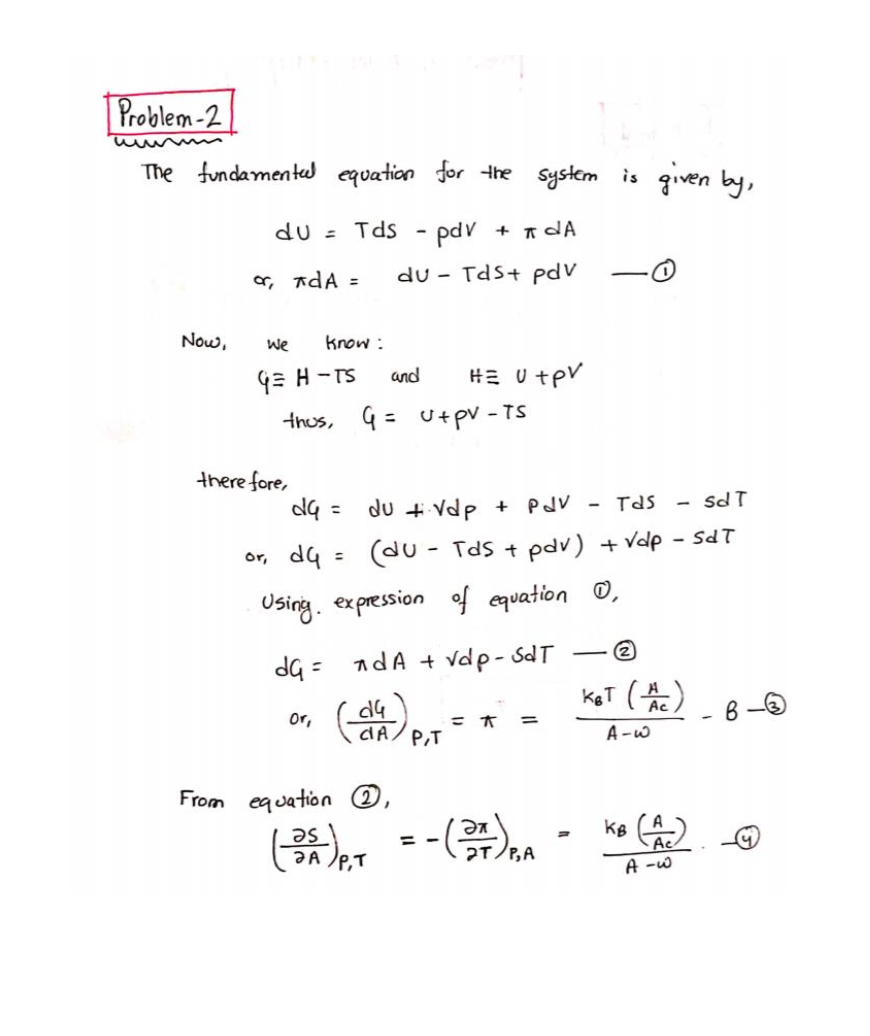 Problem-2
The fundamental equation for the system is given by,
dU = TdS - pdV + π dA
or, πdA = dU - TdS + pdV — ①
Now, we know :
G ≡ H - TS and H ≡ U + pV
thus, G = U + pV - TS
therefore,
dG = dU + Vdp + PdV - TdS - SdT
or, dG = (dU - TdS + pdV) + Vdp - SdT
Using. expression of equation ①,
dG = πdA + Vdp - SdT — ②
or, (dG/dA)P,T = π = KBT (A/Ac)/A-ω - B — ③
From equation ②,
(∂S/∂A)P,T = -(∂π/∂T)P,A = KB (A/Ac)/A-ω . — ④